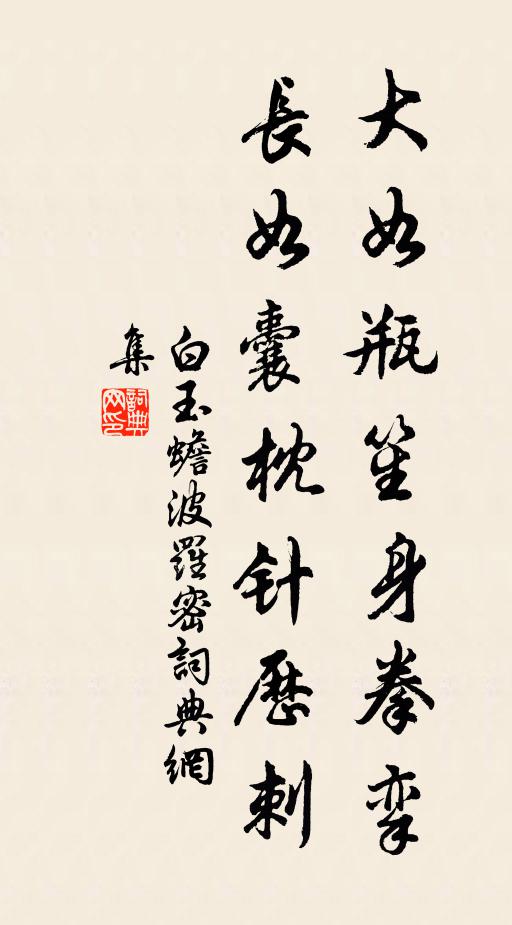 大如瓶笙身拳挛
長如囊枕针歷刺
白玉蟾波羅密詞典網
集
詞典网印